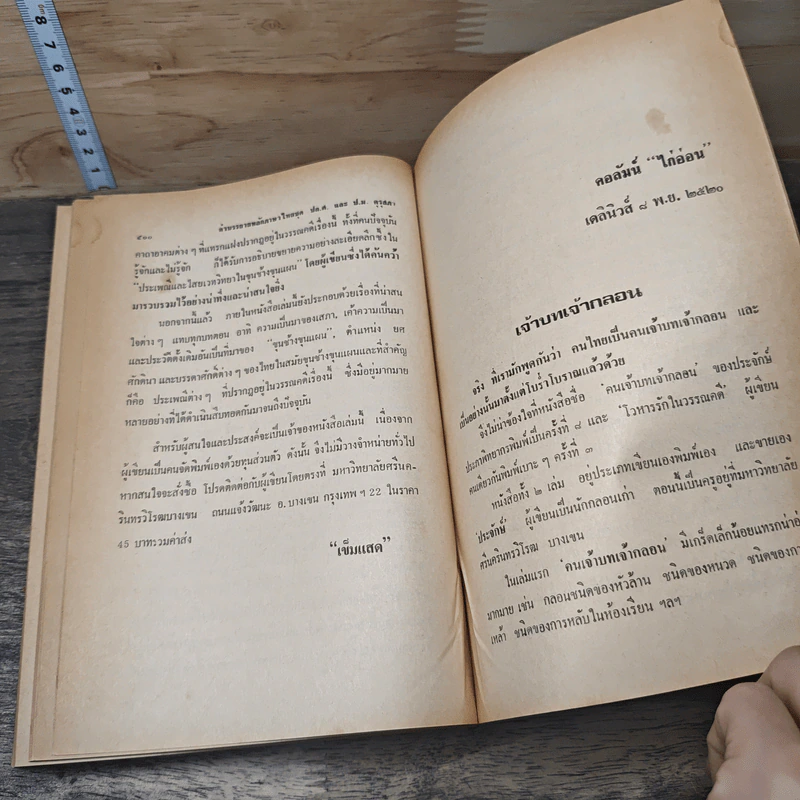 8
7
6
5
4
3
2
1
๕๐๐ คำบรรยายหลักภาษาไทยชุด ปก.ศ. และ ป.ม. คุรุสภา
คาถาอาคมต่าง ๆ ที่แทรกแฝงปรากฏอยู่ในวรรณคดีเรื่องนี้ ทั้งที่คนปัจจุบัน
รู้จักและไม่รู้จัก ก็ได้รับการอธิบายขยายความอย่างละเอียดลึกซึ้งใน
“ประเพณีและไสยเวทวิทยาในขุนช้างขุนแผน” โดยผู้เขียนซึ่งได้ค้นคว้า
มารวบรวมไว้อย่างน่าทึ่งและน่าสนใจยิ่ง
นอกจากนี้แล้ว ภายในหนังสือเล่มนี้ยังประกอบด้วยเรื่องที่น่าสน
ใจต่างๆ แทบทุกบทตอน อาทิ ความเป็นมาของเสภา, เค้าความเป็นมา
และประวัติดั้งเดิมอันเป็นที่มาของ “ขุนช้างขุนแผน”, ตำแหน่ง ยศ
ศักดินา และบรรดาศักดิ์ต่าง ๆ ของไทยในสมัยขุนช้างขุนแผนและที่สำคัญ
ก็คือ ประเพณีต่าง ๆ ที่ปรากฏอยู่ในวรรณคดีเรื่องนี้ ซึ่งมีอยู่มากมาย
หลายอย่างที่ได้ดำเนินสืบทอดกันมาจนถึงปัจจุบัน
สำหรับผู้สนใจและประสงค์จะเป็นเจ้าของหนังสือเล่มนี้ เนื่องจาก
ผู้เขียนเป็นคนจัดพิมพ์เองด้วยทุนส่วนตัว ดังนั้น จึงไม่มีวางจำหน่ายทั่วไป
หากสนใจจะสั่งซื้อ โปรดติดต่อกับผู้เขียนโดยตรงที่ มหาวิทยาลัยศรีนค-
รินทรวิโรฒบางเขน ถนนแจ้งวัฒนะ อ. บางเขน กรุงเทพ ฯ 22 ในราคา
45 บาทรวมค่าส่ง
“เข็มแสด”
คอลัมน์ “ไก่อ่อน”
เดลินิวส์ ๘ พ.ย. ๒๕๒๐
เจ้าบทเจ้ากลอน
จริง ที่เรามักพูดกันว่า คนไทยเป็นคนเจ้าบทเจ้ากลอน และ
เป็นอย่างนั้นมาตั้งแต่โบร่ำโบราณแล้วด้วย
จึงไม่น่าข้องใจที่หนังสือชื่อ ‘คนเจ้าบทเจ้ากลอน’ ของประจักษ์
ประภาพิทยากรพิมพ์เป็นครั้งที่ ๘ และ ‘โวหารรักในวรรณคดี’ ผู้เขียน
คนเดียวกันพิมพ์เบาะ ๆ ครั้งที่ ๓
หนังสือทั้ง ๒ เล่ม อยู่ประเภทเขียนเองพิมพ์เอง และขายเอง
‘ประจักษ์’ ผู้เขียนเป็นนักกลอนเก่า ตอนนี้เป็นครูอยู่ที่มหาวิทยาลัย
ศรีนครินทรวิโรฒ บางเขน
ในเล่มแรก ‘คนเจ้าบทเจ้ากลอน’ มีเกร็ดเล็กน้อยแทรกน่า
มากมาย เช่น กลอนชนิดของหัวล้าน ชนิดของหนวด ชนิดของ
เหล้า ชนิดของการหลับในห้องเรียน ฯลฯ